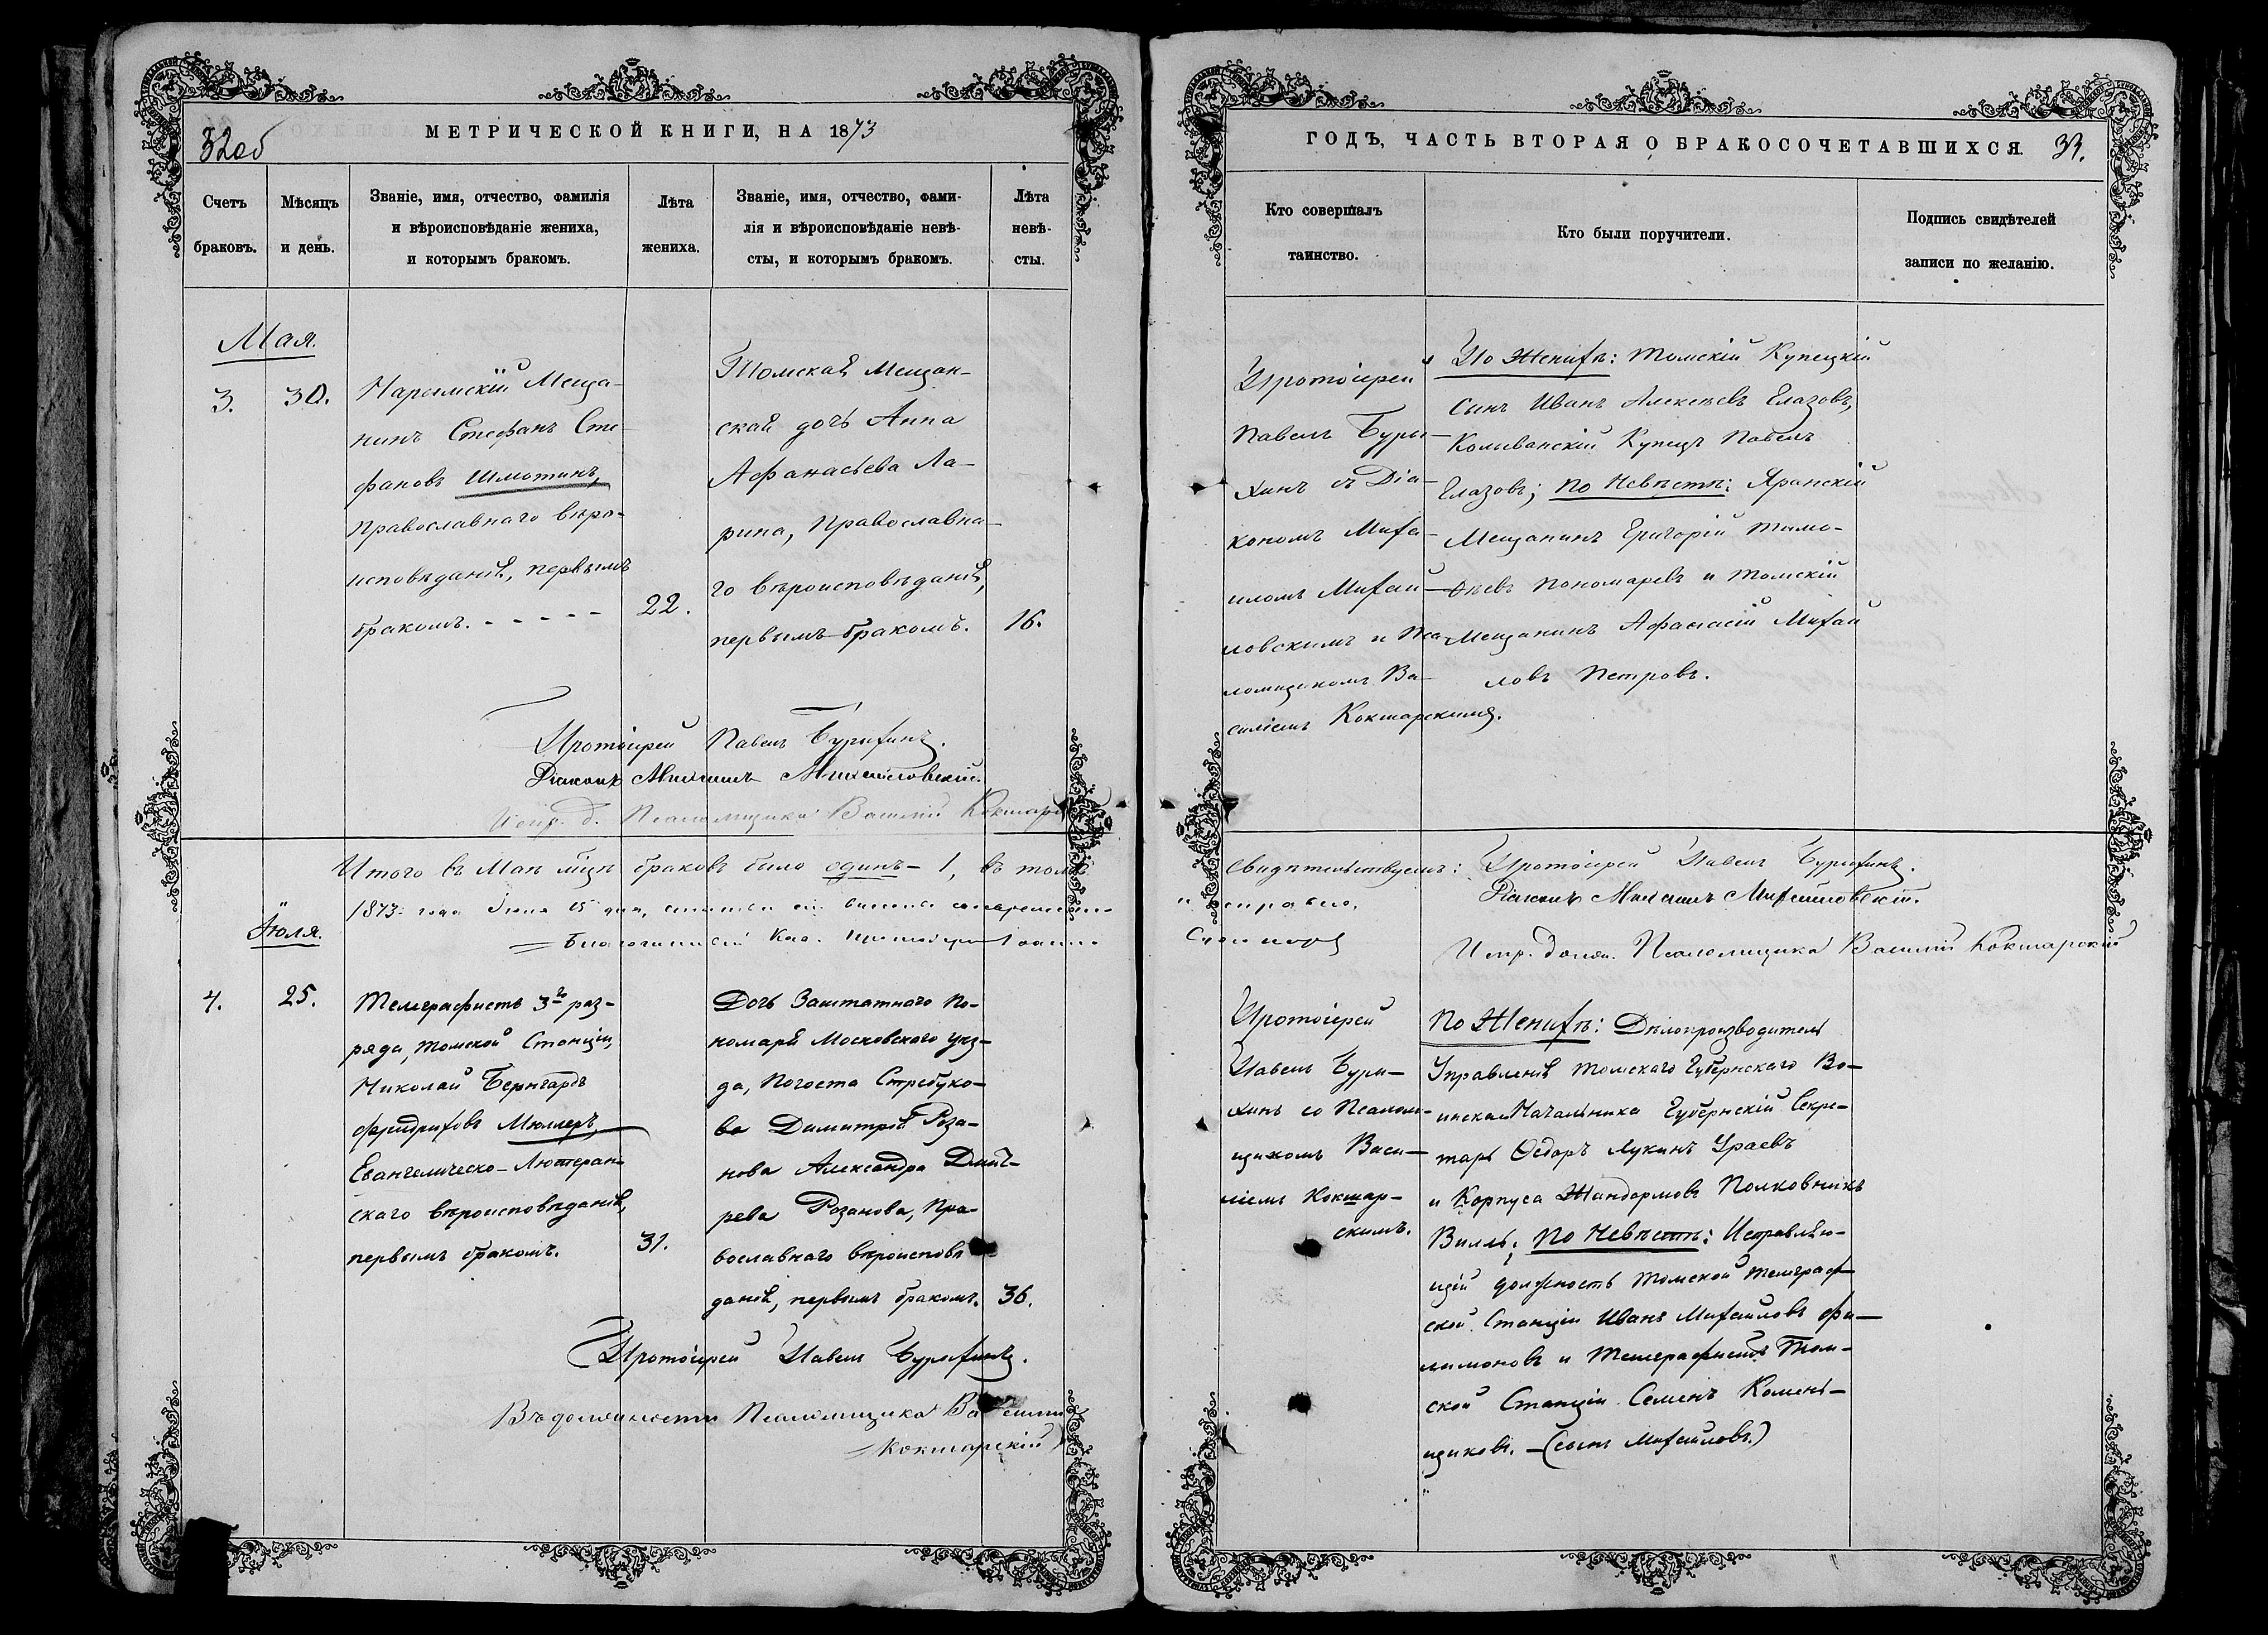 32об
МЕТРИЧЕСКОЙ КНИГИ, НА 1873
Счетъ браковъ.
Мѣсяцъ и день.
Званіе, имя, отчество, фамилія
и вѣроисповѣданіе жениха,
и которымъ бракомъ.
Лѣта жениха.
Званіе, имя, отчество, фами-
лія и вѣроисповѣданіе невѣ-
сты, и которымъ бракомъ.
Лѣта невѣ-
сты.
Мая.
3.
30.
Нарымскій Меща-
нинъ Стефанъ Сте-
фановъ Шмотинъ,
Православнаго вѣро-
исповѣданія, первымъ
бракомъ. - - - - -
22.
Томская мещан-
ская дочь Анна
Афанасьева Ла-
рина, Православна-
го вѣроисповѣданія,
первымъ бракомъ.
16.
Протоіерей Павелъ Бурыхинъ.
Діаконъ Михаилъ Михайловскій.
Испр. д. Псаломщика Василій Кокшарс
Итого въ Маѣ мѣцѣ браковъ было одинъ - 1, въ томъ
1873 года Іюня 15 дня,
Благочинный
Іюля.
4.
25.
Телеграфистъ 3го раз-
ряда, Томской Станціи,
Николай Бернгардъ
Фридриховъ Мюллеръ,
Евангелическо-Лютеран-
скаго вѣроисповѣданія,
первымъ бракомъ.
31.
Дочь Заштатнаго По-
номаря Московского уѣз-
да, Погоста Стребуко-
ва Димитрія Роза-
нова Александра Дмит-
рева Розанова, Пра-
вославнаго вѣроисповѣ
данія, первымъ бракомъ.
36.
Протоіерей Павелъ Бурыхинъ.
Въ должности Псаломщика Василій
Кокшарскій
ГОДЪ, ЧАСТЬ ВТОРАЯ О БРАКОСОЧЕТАВШИХСЯ.
33.
Кто совершалъ
таинство.
Кто были поручители.
Подпись свидѣтелей
записи по желанію.
Протоіерей
Павелъ Буры-
хинъ съ Діа-
кономъ Миха-
иломъ Михай-
ловскимъ и Пса-
ломщикомъ Ва-
силіемъ Кокшарскимъ.
По Женихѣ: Томскій Купецкій
сынъ Иванъ Алексѣевъ Глазовъ,
Колыванскій Купецъ Павелъ
Глазовъ; по Невѣстѣ: Яранскій
Мещанинъ Григорій Тимо-
ѳеевъ Пономаревъ и Томскій
Мещанинъ Афанасій Михай
ловъ Петровъ.
свидѣтельствуемъ: Протоіерей Павелъ Бурыхинъ.
Діаконъ Михаилъ Михайловскій.
исправно.
Испр. должн. Псаломщика Василій Кокшарскій
Протоіерей
Павелъ Буры-
хинъ со Псалом-
щикомъ Васи-
ліемъ Кокшар-
скимъ.
По Женихѣ: Дѣлопроизводитель
Управленія Томскаго Губернскаго Во-
инскаго Начальника Губернскій Секре-
тарь Ѳедоръ Лукинъ Ураевъ
и Корпуса Жандармовъ Полковникъ
Вилль; по Невѣстѣ: Исправляю-
щій должность Томской телеграф-
ской Станціи Иванъ Михайловъ Фи-
лимоновъ и Телеграфистъ Том-
ской Станціи Семенъ Камень-
щиковъ. - (сынъ Михайловъ.)